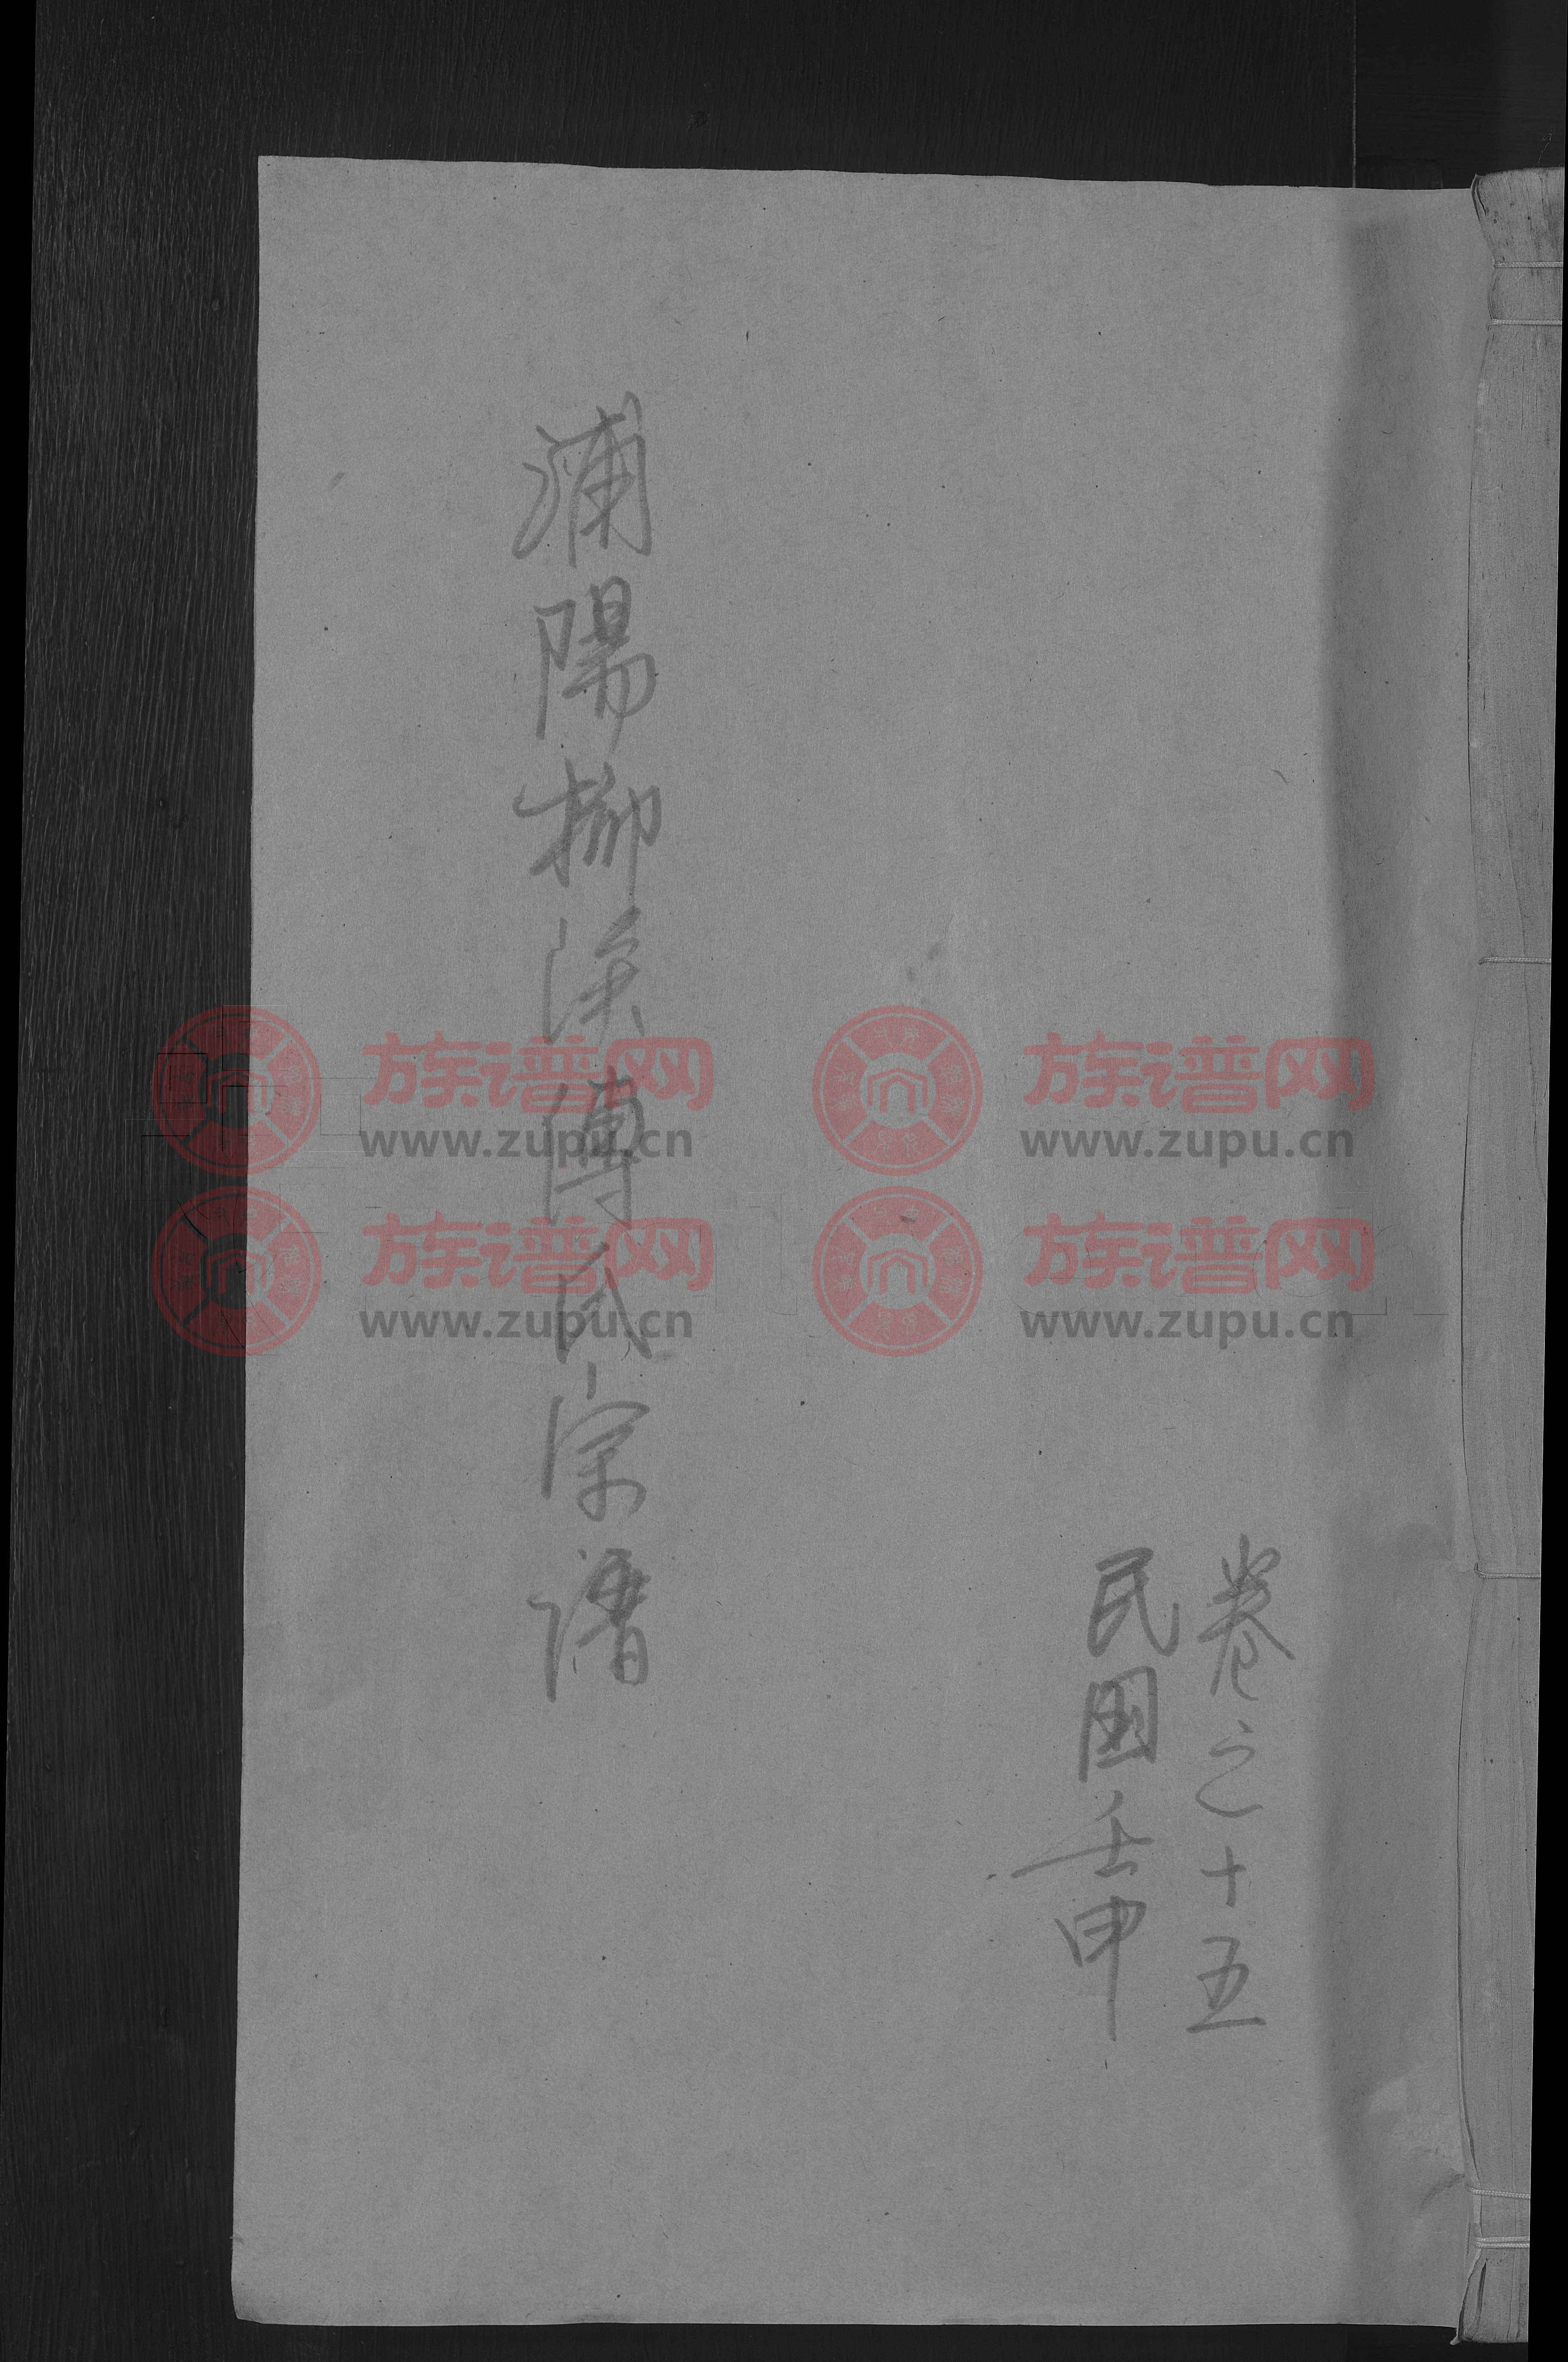 卷之十五
民國壬申
浦陽柳溪傅氏宗譜
族谱网
www.zupu.cn
族谱网
www.zupu.cn
族谱网
www.zupu.cn
族谱网
www.zupu.cn